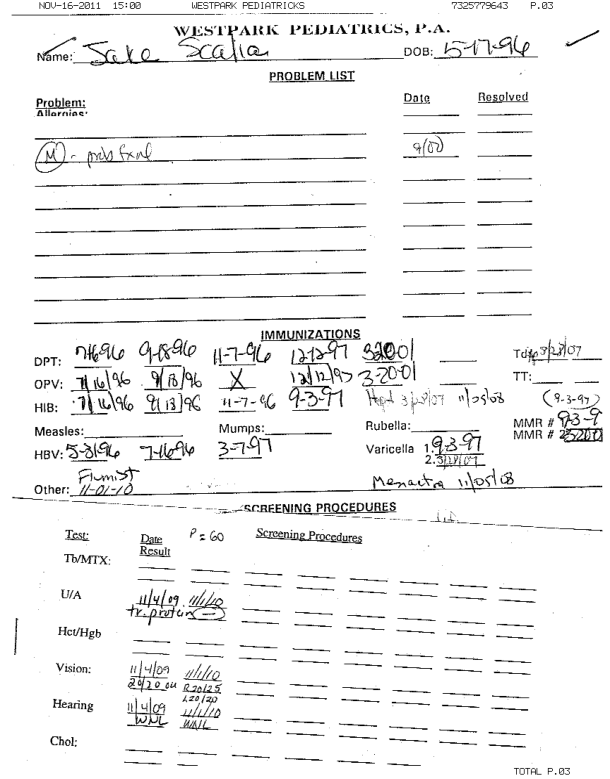 NOV-16-2011 15:00 WESTPARK PEDIATRICKS 7325779643 P.03
WESTPARK PEDIATRICS, P.A.
Name: Jake Scalia DOB: 5-17-96
PROBLEM LIST
Problem: Date Resolved
Allergies:
(M) - 9/00
IMMUNIZATIONS
DPT: 7-16-96 9-18-96 11-7-96 12-12-97 3-20-01 Tdap 3/28/07
OPV: 7/16/96 9/18/96 X 12/12/97 3-20-01 TT:
HIB: 7/16/96 9/18/96 11-7-96 9-3-97 HepA 3/28/07 11/05/08 (9-3-97)
Measles: Mumps: Rubella: MMR # 9-3-9
MMR # 2 3-20-01
HBV: 5-31-96 7-16-96 3-7-97 Varicella 1. 9-3-97
2. 3/28/07
Flumist
Other: 11-01-10 Menactra 11/05/08
SCREENING PROCEDURES
Test: Date P = 60 Screening Procedures
Result
Tb/MTX:
U/A 11/4/09 11/1/10
tr. protein (-)
Hct/Hgb
Vision: 11/4/09 11/1/10
20/20 OU R20/25
L20/20
Hearing 11/4/09 11/1/10
WNL WNL
Chol:
TOTAL P.03